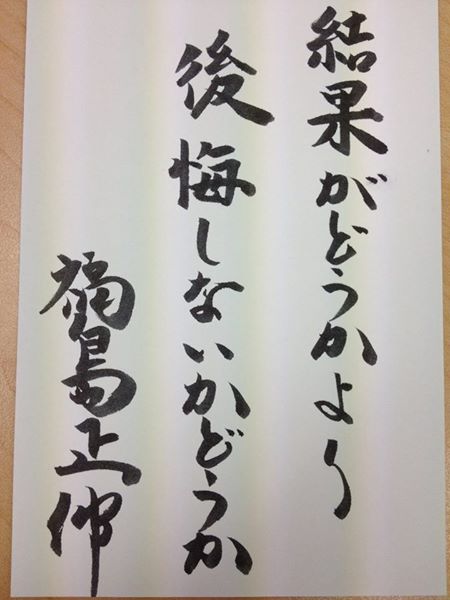 結果がどうかより
後悔しないかどうか
福島正伸